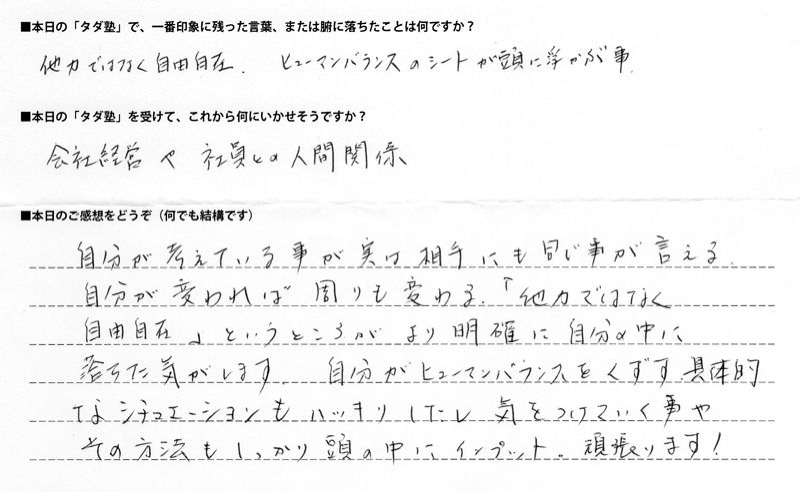 ■本日の「タダ塾」で、一番印象に残った言葉、または腑に落ちたことは何ですか?
他力ではなく自由自在. ヒューマンバランスのシートが頭に浮かぶ事.
■本日の「タダ塾」を受けて、これから何にいかせそうですか?
会社経営や 社員との人間関係
■本日のご感想をどうぞ(何でも結構です)
自分が考えている事が実は相手にも同じ事が言える.
自分が変われば周りも変わる.「他力ではなく
自由自在」というところがより明確に自分の中に
落ちた気がします. 自分がヒューマンバランスをくずす具体的
なシチュエーションもハッキリしたし気をつけていく事や
その方法もしっかり頭の中にインプット。頑張ります!